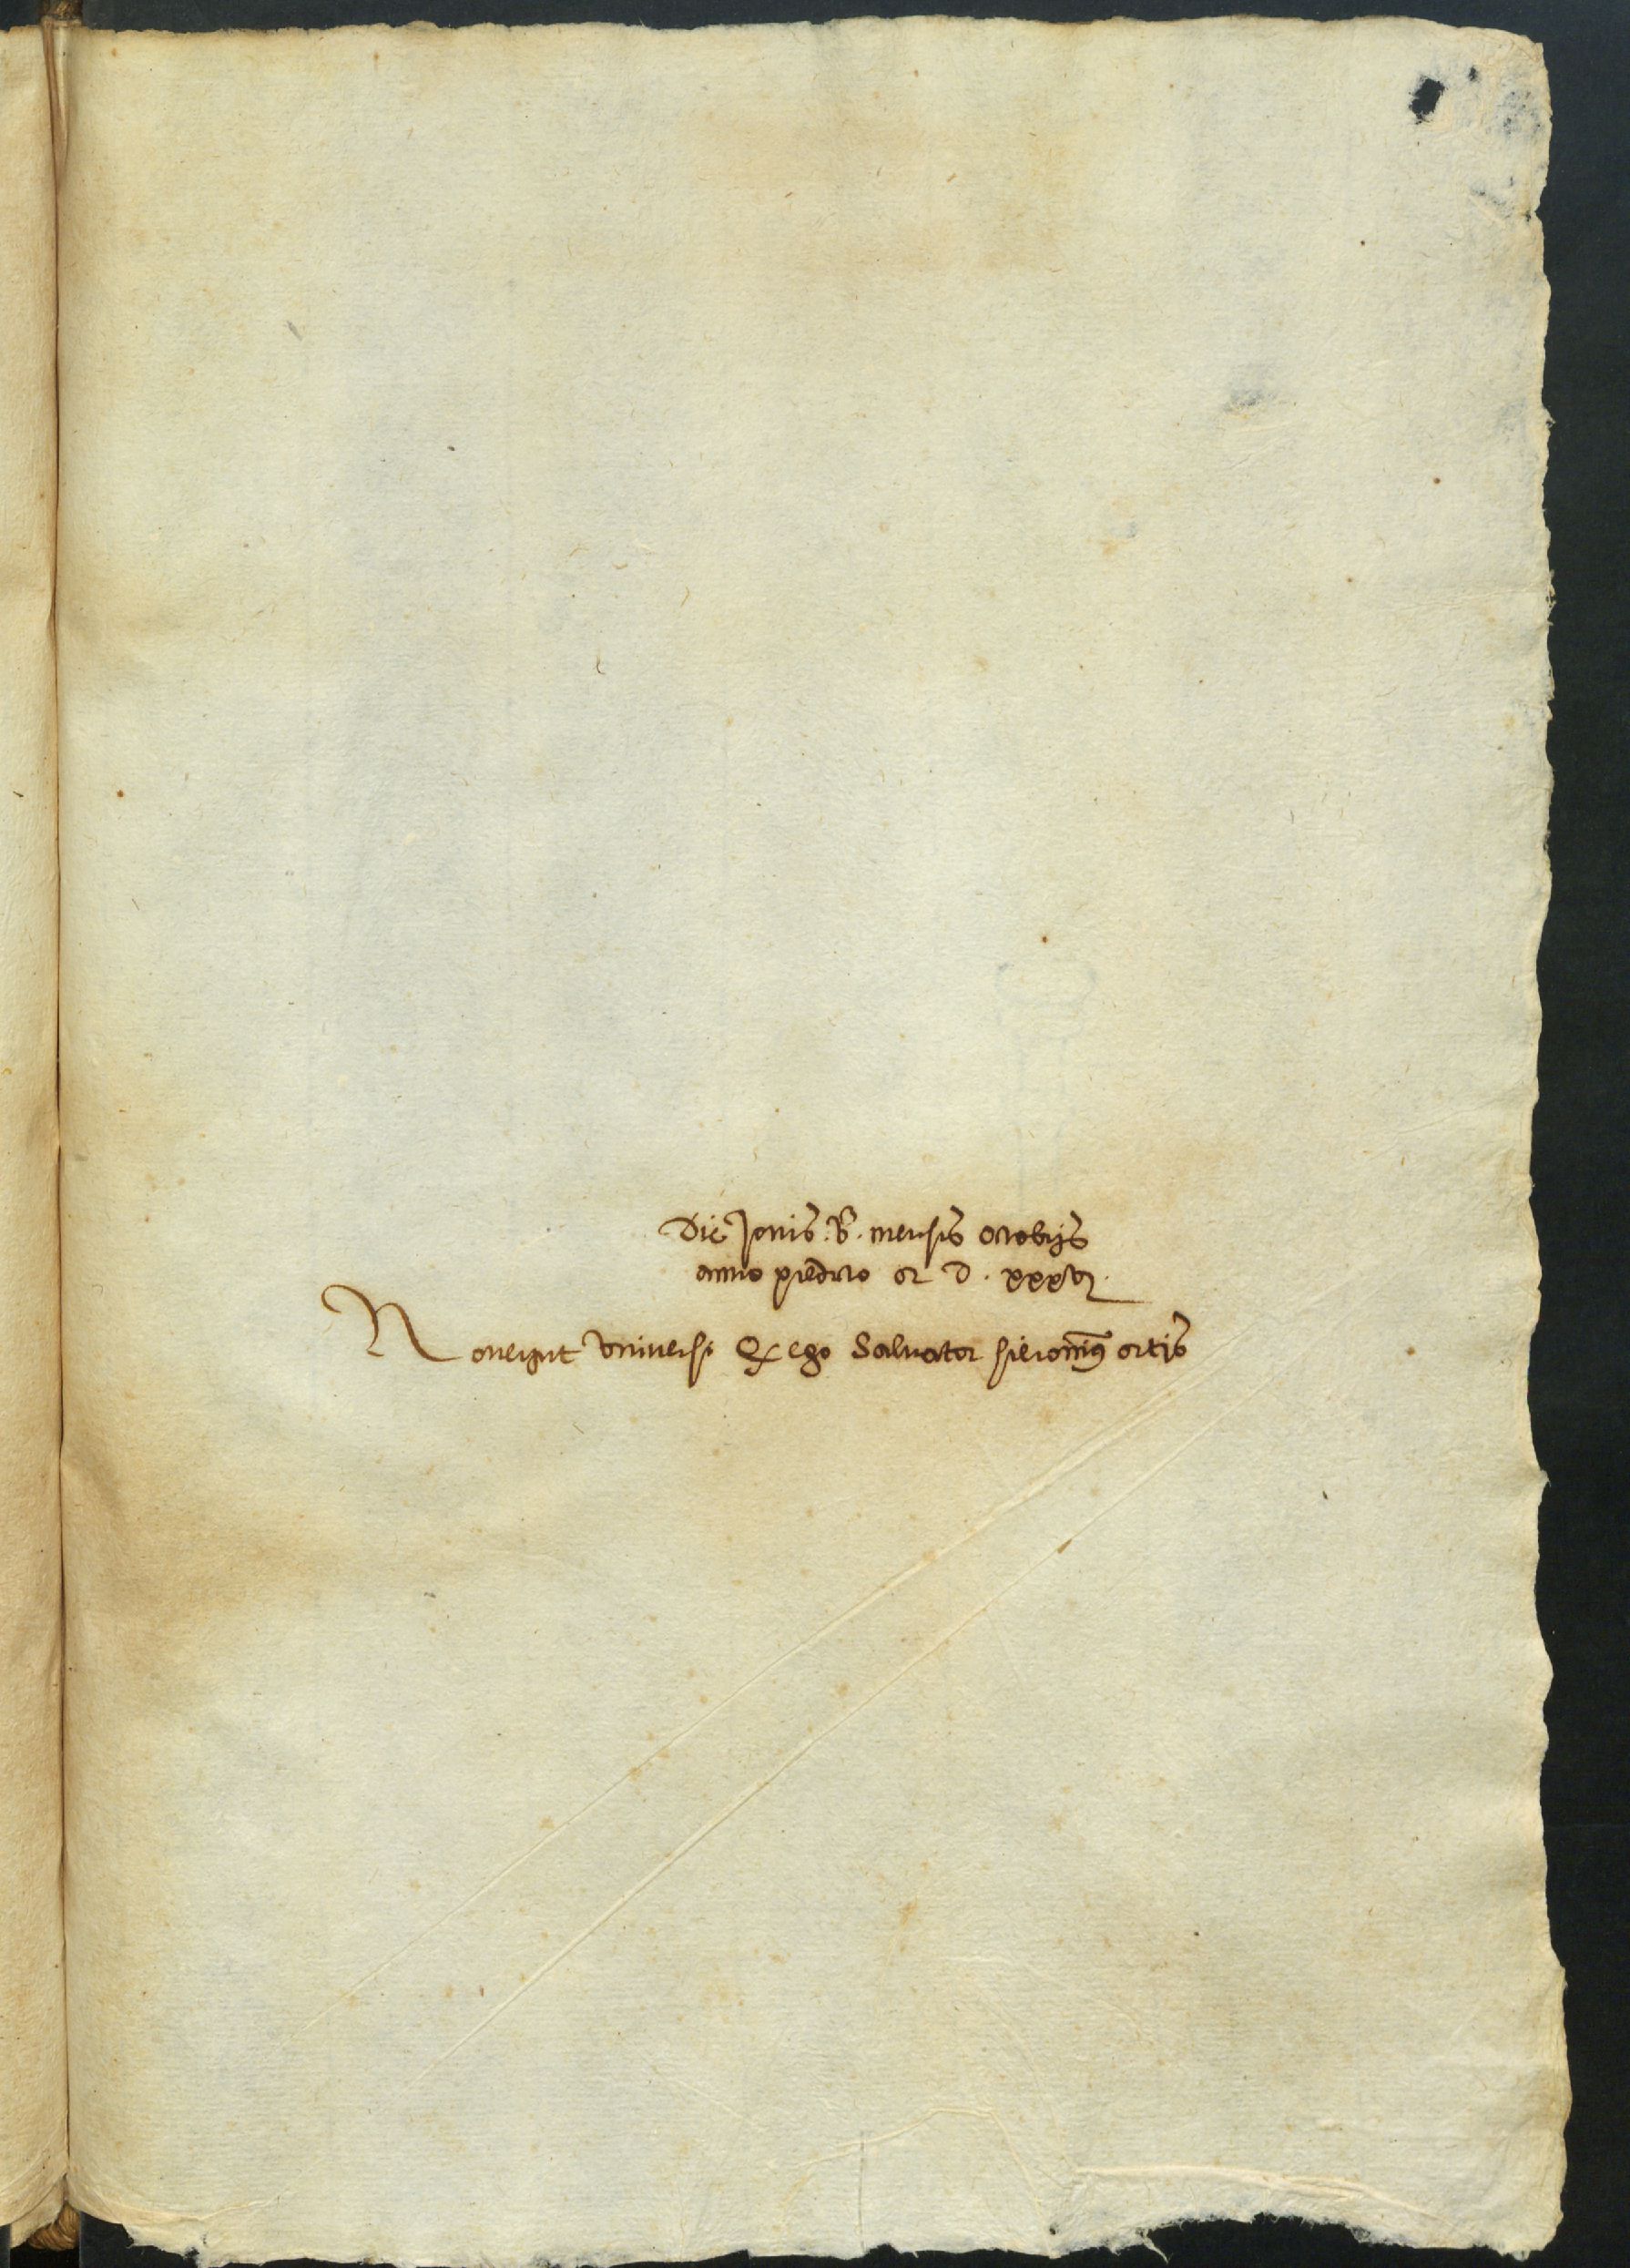 Die Jouis .v. mensis octobris
anno predicto M D . xxxvj.
Nouerint vniuersi Q ego Saluator hieronimus ortis